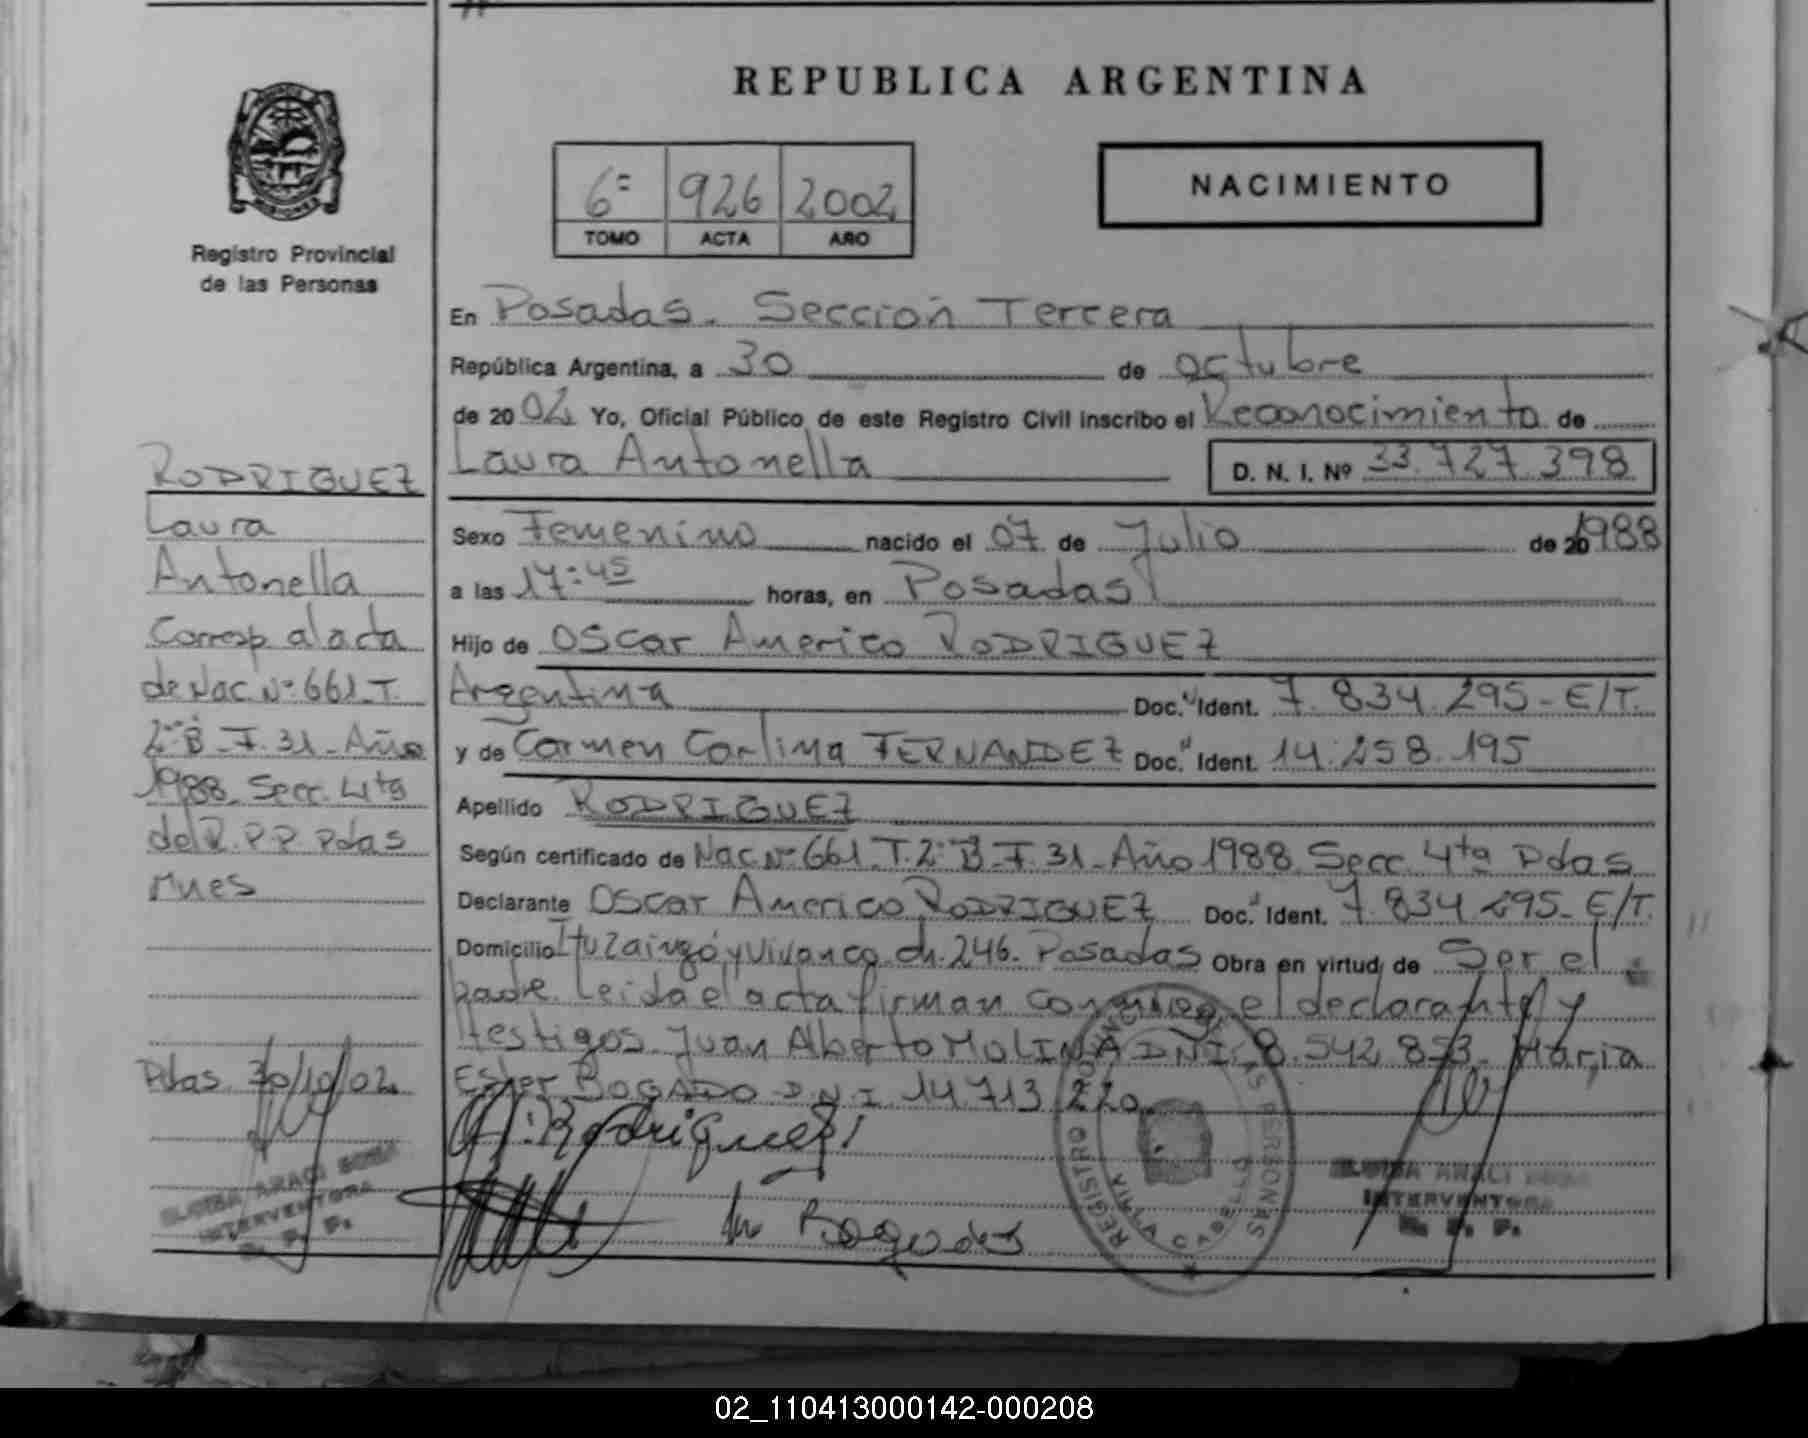 REPUBLICA ARGENTINA
6º 926 2002
TOMO ACTA AÑO
NACIMIENTO
MISIONES
Registro Provincial
de las Personas
En Posadas. Sección Tercera
República Argentina, a 30 de octubre
de 2002 Yo, Oficial Público de este Registro Civil inscribo el Reconocimiento de
Laura Antonella D. N. I. Nº 33.727.398
Sexo Femenino nacido el 07 de Julio de 20 1988
a las 17:45 horas, en Posadas
Hijo de Oscar Americo RODRIGUEZ
Argentina Doc. Ident. 7.834.295-E/T.
y de Carmen Carlina FERNANDEZ Doc. Ident. 14.258.195
Apellido RODRIGUEZ
Según certificado de Nac Nº 661_T.2º B_F.31_Año 1988. Secc. 4ta Pdas
Declarante Oscar Americo RODRIGUEZ Doc. Ident. 7.834.295-E/T.
Domicilio Ituzaingó y Vivanco ch. 246. Posadas Obra en virtud de Ser el
padre. Leida el acta firman conmigo el declarante y
testigos Juan Alberto MOLINA DNI: 8.542.853. Maria
Ester BOGADO D.N.I 14713220
RODRIGUEZ
Laura
Antonella
Corresp. al acta
de Nac Nº 661_T.
2º B_F.31_Año
1988_Secc. 4ta
del R.P.P. Pdas
Mnes
Pdas 30/10/02
ELOISA ARACI SOSA
INTERVENTORA
R. P. P.
Rodriguez
Bogado
REGISTRO PERSONAS
VILLA CABELLO
ELOISA ARACI SOSA
INTERVENTORA
R. P. P.
02_110413000142-000208